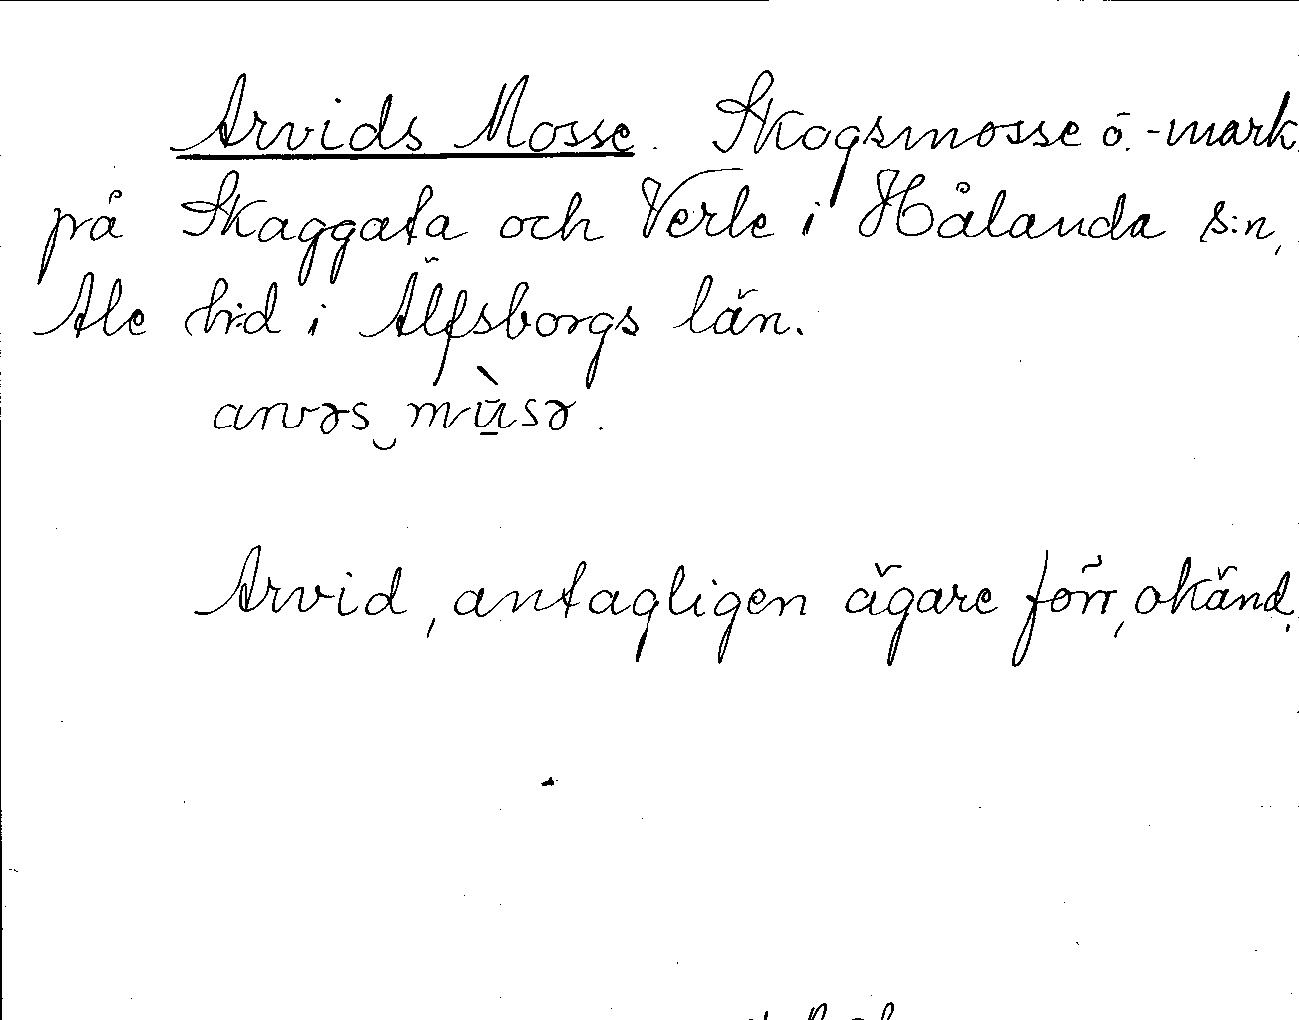 Arvids Mosse. Skogsmosse o. -mark
på Skaggata och Verle i Hålanda s:n,
Ale h:d i Älfsborgs län.
arvəs mùsə.
Arvid, antagligen ägare förr, okänd.